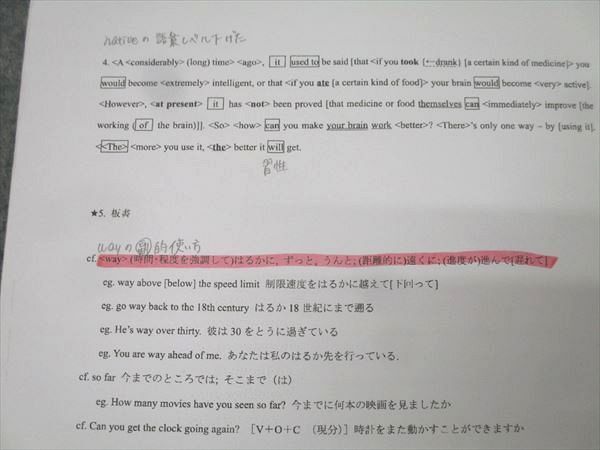 nativeの語彙レベル下げた
4. <A <considerably> (long) time> <ago>, it used to be said [that <if you took (←drank) [a certain kind of medicine]> you
would become <extremely> intelligent, or that <if you ate [a certain kind of food]> your brain would become <very> active].
<However>, <at present> it has <not> been proved [that medicine or food themselves can <immediately> improve [the
working (of the brain)]]. <So> <how> can you make your brain work <better>? <There>'s only one way – by [using it].
<The> <more> you use it, <the> better it will get.
習性
★5. 板書
wayの副的使い方
cf. <way> (時間・程度を強調して)はるかに, ずっと, うんと; (距離的に)遠くに; (進度が)進んで[遅れて]
eg. way above [below] the speed limit 制限速度をはるかに越えて[下回って]
eg. go way back to the 18th century はるか 18 世紀にまで遡る
eg. He's way over thirty. 彼は 30 をとうに過ぎている
eg. You are way ahead of me. あなたは私のはるか先を行っている.
cf. so far 今までのところでは; そこまで（は）
eg. How many movies have you seen so far? 今までに何本の映画を見ましたか
cf. Can you get the clock going again? ［V＋O＋C （現分）］時計をまた動かすことができますか